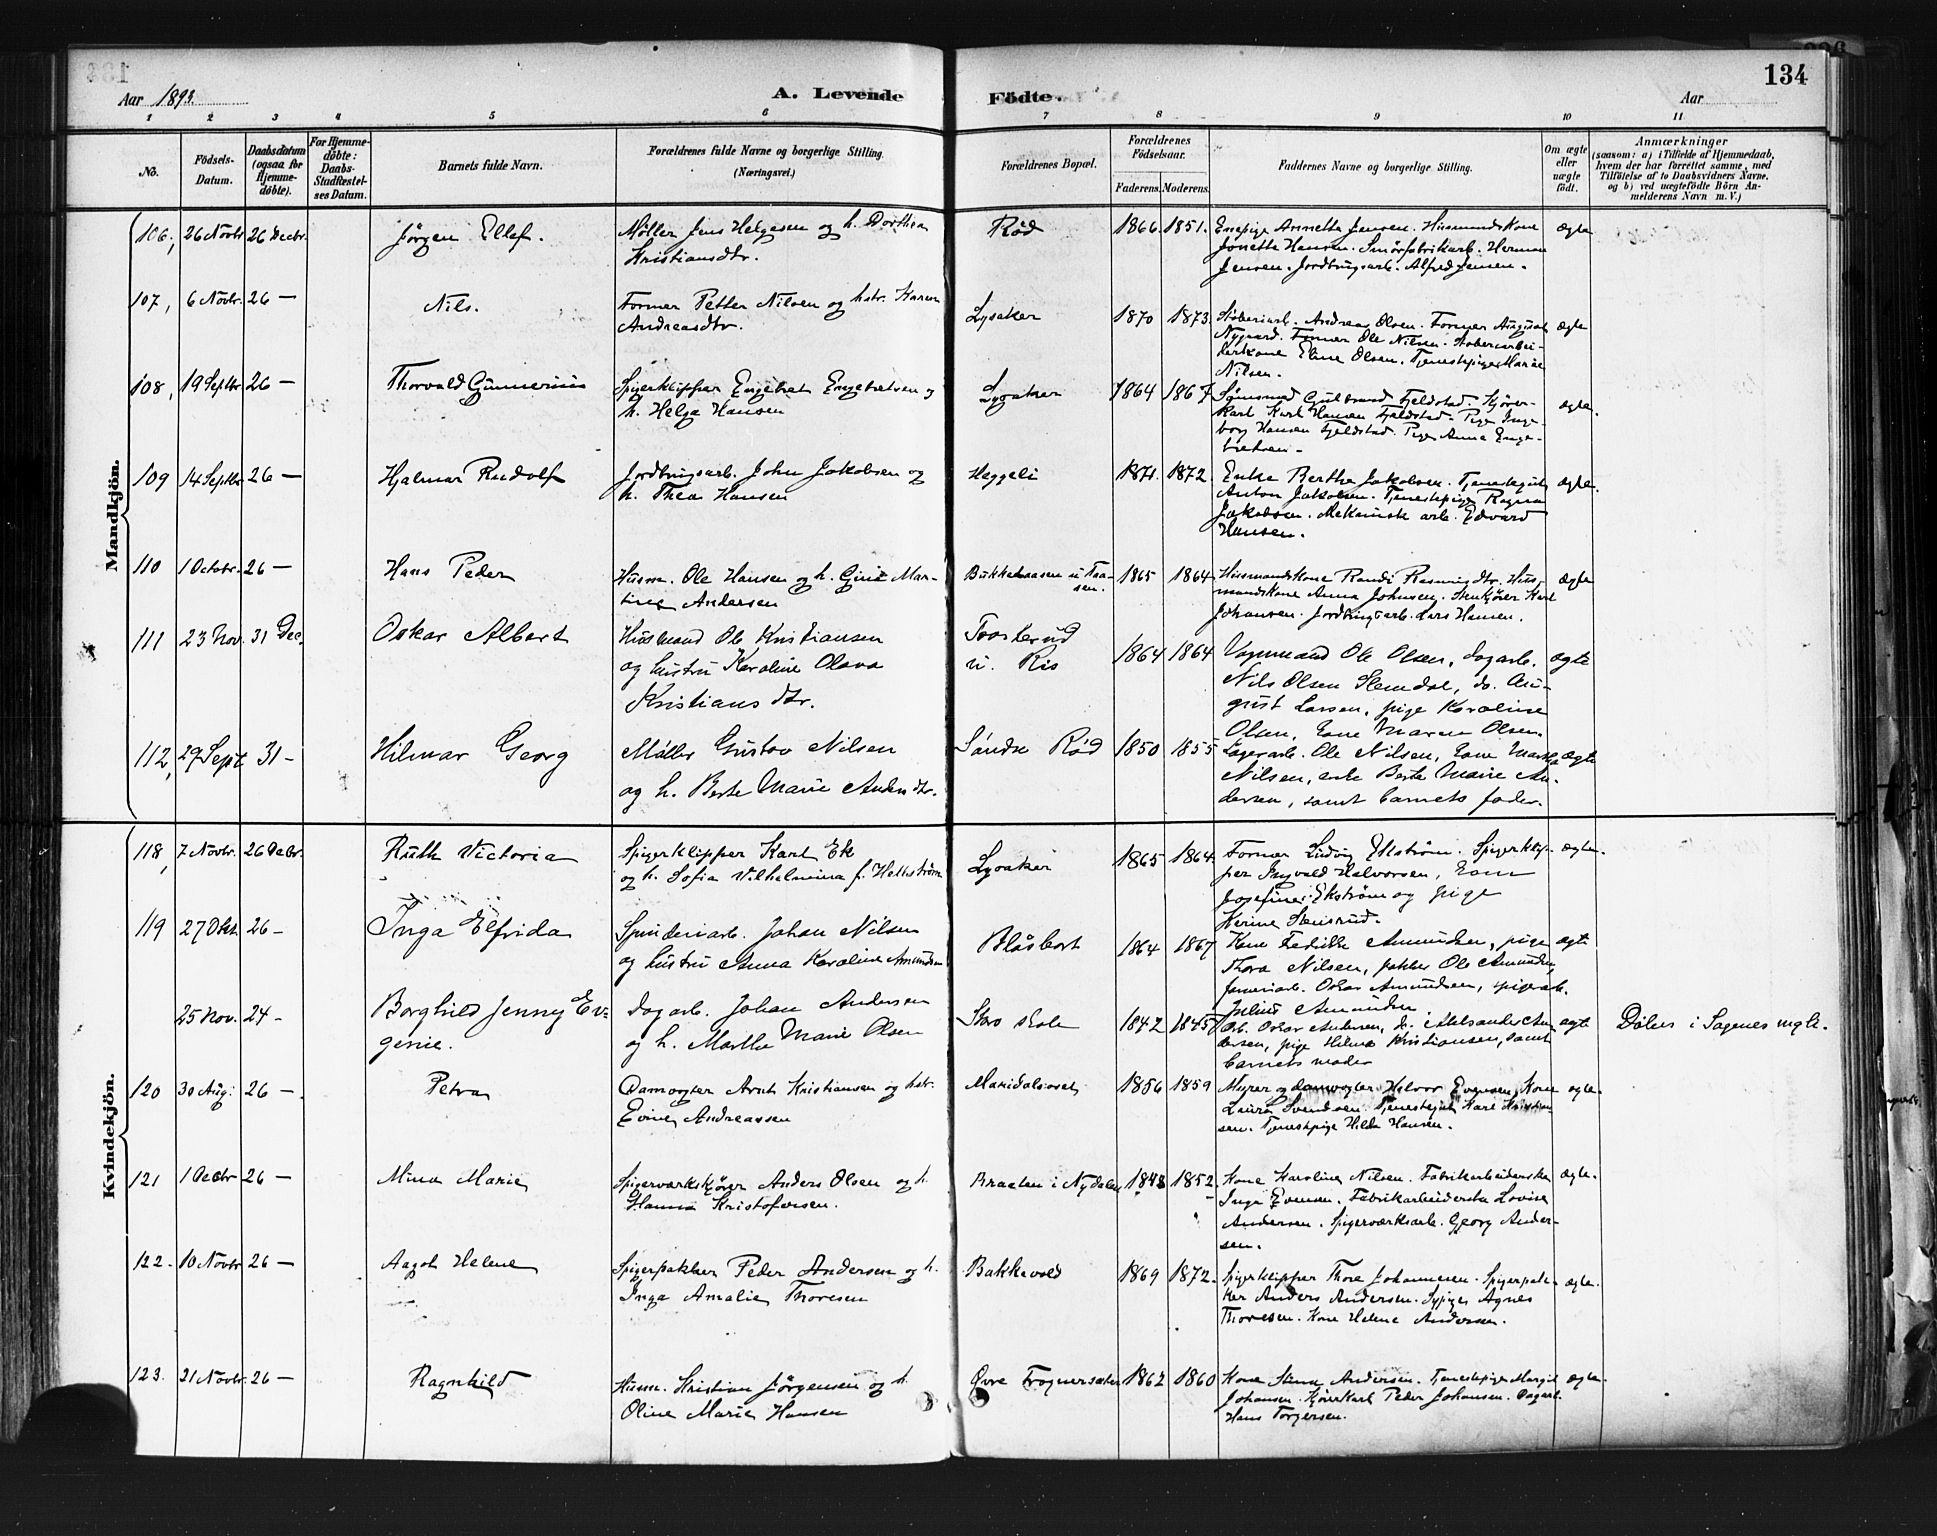 134
Aar 1893. A. Levende Födte. Aar
1 2 3 4 5 6 7 8 9 10 11
No.
Födsels-Datum.
Daabsdatum (ogsaa for Hjemme-döbte).
For Hjemme-döbte: Daabs-Stadfæstel-ses Datum.
Barnets fulde Navn.
Forældrenes fulde Navne og borgerlige Stilling. (Næringsvei.)
Forældrenes Bopæl.
Forældrenes Födselsaar. Faderens. Moderens.
Faddernes Navne og borgerlige Stilling.
Om ægte eller uægte födt.
Anmærkninger
(saasom: a) i Tilfælde af Hjemmedaab,
hvem der har forrettet samme, med
Tilföielse af to Daabsvidners Navne,
og b) ved uægtefödte Börn An-
melderens Navn m.V.)
Mandkjön.
106, 26 Novbr 26 Decbr. Jörgen Ellef. Möller Jens Helgesen og h. Dorthea
Kristiansdtr. Röd 1866. 1851. Pige Annetta Jensen. Husmandskone
Jonetta Hansen. Smörfabrikarb. Herman
Jensen. Jordbrugsarb. Alfred Jensen. ægte
107, 6 Novbr. 26 — Nils. Former Petter Nilsen og hstr. Karen
Andreasdtr. Lysaker 1870 1873. Stöberiarb. Andreas Olsen. Former August
Nygaard. Former Ole Nilsen. Stöberiarbei-
derkone Eline Olsen. Tjenestepige Marie
Nilsen. ægte
108, 19 Septbr 26 — Thorvald Gunnerius Spigerklipper Engebret Engebretsen og
h. Helga Hansen Lysaker 1864 1867 Gulbrand Fjeldstad. Kjöre-
karl Karl Hansen Fjeldstad. Pige Inge-
borg Hansen Fjeldstad. Pige Anna Enge-
bretsen. ægte.
109 14 Septbr 26 — Hjalmar Rudolf Jordbrugsarb. John Jakobsen og
h. Thea Hansen Heggeli 1871. 1872. Enke Berthe Jakobsen. Tjenestegut
Anton Jakobsen. Tjenestepige Ragna
Jakobsen. Mekanisk arb. Edvard
Hansen. ægte.
110 1 Octobr. 26 — Hans Peder Husm. Ole Hansen og h. Gina Mar-
tine Andersen u. Taa-
sen. 1865 1864 Husmandskone Randi Rasmusdtr. Hus-
mandskone Anna Johnsen. Stenkjörer Karl
Johansen. Jordbrugsarb. Lars Hansen. ægte
111 23 Nov. 31 Dec. Oskar Albert Husmand Ole Kristiansen
og hustru Karoline Olava
Kristiansdtr. Taasterud
u. Ris 1864 1864 Vognmand Ole Olsen, dagarb.
Nils Olsen Slemdal, do. Au-
gust Larsen, pige Karoline
Olsen, kone Maren Olsen. ægte
112, 29 Sept 31 — Hilmar Georg Möller Gustav Nilsen
og h. Berte Marie Andersdtr. Söndre Röd 1850 1855 Lagerarb. Ole Nilsen, kone Martha
Nilsen, enke Berte Marie An-
dersen, samt barnets fader. ægte
Kvindekjön.
118, 7 Novbr. 26 Decbr. Ruth Victoria Spigerklipper Karl Ek
og h. Sofia Vilhelmina f. Hellström Lysaker 1865 1864 Former Ludvig Ekström. Spigerklip-
per Ingvald Halvorsen, kone
Josefine Ekström og pige
Karine Stensrud. ægte.
119 27 Okt. 26 — Inga Elfrida Spinderiarb. Johan Nilsen
og hustru Anna Karoline Amundsen Blåsbort 1864 1867 Kone Fredrikke Amundsen, pige
Thora Nilsen, pakker Ole Amundsen,
Oskar Amundsen, spigerarb.
Julius Amundsen. ægte
25 Nov. 24 — Borghild Jenny Ev-
genie. Dagarb. Johan Andersen
og h. Marthe Marie Olsen Skole 1842 1845 Arb. Oskar Andersen, do. Aleksander An-
dersen, pige Hilma Kristiansen, samt
barnets moder ægte Döbt i Sagenes mgh.
120 30 Aug. 26 — Petra Damvogter Arnt Kristiansen og hstr.
Evine Andreassen Maridalsoset 1856 1859 Murer og damvogter Halvor Evensen, Kone
Laura Svendsen. Tjenestegut Karl Kristian
sen. Tjenestepige Hilda Hansen. ægte.
121 1 Decbr 26 — Mina Marie Spigerværkskjörer Anders Olsen og h.
Hanna Kristofersen. Braaten i Nydalen 1848 1852 Kone Karoline Nilsen. Fabrikarbeiderske
Inga Evensen. Fabrikarbeiderske Lovise
Andersen. Spigerværksarb. Georg Ander-
sen. ægte.
122. 10 Novbr 26 — Aagot Helene Spigerpakker Peder Andersen og h.
Inga Amalie Thoresen Bakkevold 1869 1872. Spigerklipper Thore Johannesen. Spigerpak-
ker Anders Andersen. Sypige Agnes
Thoresen. Kone Helene Andersen. ægte.
123. 21 Novbr. 26 — Ragnhild Husm. Kristian Jörgensen og h.
Oline Marie Hansen Övre Frognersæter 1862 1860 Kone Stina Andersen. Tjenestepige Margit
Johansen. Kjörekarl Peder Johansen. Dagarb.
Hans Torgersen. ægte.